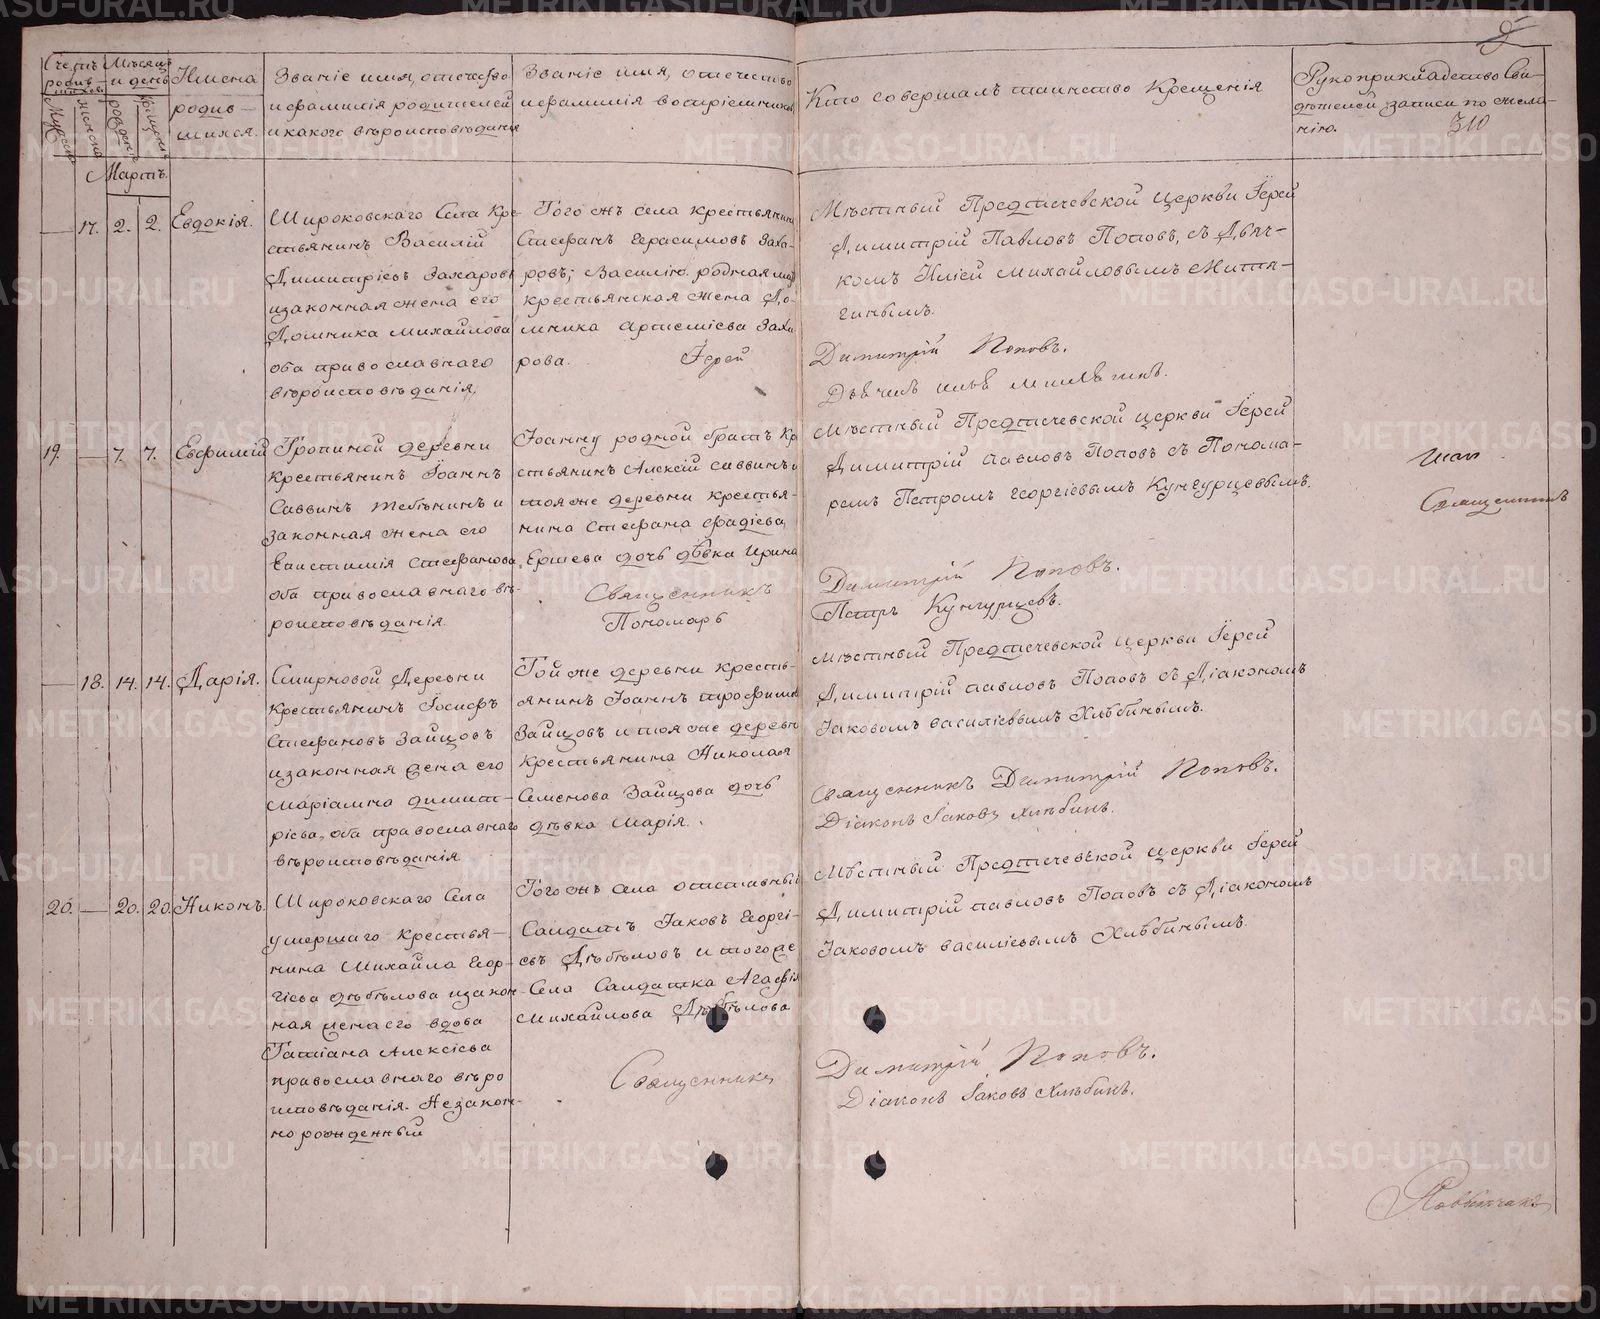 Счетъ родив-шихся.
Мужеска
Женска
Мѣсяцъ и день
рожденія
крещенія
Имена
родив-
шихся.
Званіе имя, отечество
и фамилія родителей
и какого вѣроисповѣданія
Званіе имя, отечество
и фамилія воспріемниковъ
Кто совершалъ таинство Крещенія
Рукоприкладство Сви-
дѣтелей записи по жела-
нію.
310
Мартъ.
17. 2. 2. Евдокія.
Широковскаго Села Кре-
стьянинъ Василій
Димитріевъ Захаровъ
и законная жена его
Домника Михайлова
оба православнаго
вѣроисповѣданія,
Того жъ села крестьянинъ
Стефанъ Герасимовъ Заха-
ровъ; Василію родная мать
крестьянская жена До-
мника Артеміева Заха-
рова. Іерей
Мѣстный Предтечевской церкви Іерей
Димитрій Павловъ Поповъ, съ Дьяч-
комъ Иліей Михайловымъ Митя-
гинымъ.
Димитрій Поповъ.
Дьячекъ Илья
19. 7. 7. Евфимій
Тропиной деревни
крестьянинъ Іоаннъ
Саввинъ и
законная жена его
Епистимія Стефанова,
оба православнаго вѣ-
роисповѣданія.
Іоанну родной братъ Кре
стьянинъ Алексій Саввинъ и
тоя же деревни крестья-
нина Стефана Фадіева
Ершева дочь дѣвка Ирина
Священникъ
Пономарь
Мѣстный Предтечевской церкви Іерей
Димитрій Павловъ Поповъ съ Понома-
ремъ Петромъ Георгіевымъ Кунгурцевымъ.
Димитрій Поповъ.
Петръ Кунгурцевъ.
Священникъ
18. 14. 14. Дарія.
Смирновой Деревни
крестьянинъ Іосифъ
Стефановъ Зайцовъ
и законная жена его
Маріамна Димит-
ріева, оба православнаго
вѣроисповѣданія
Той же деревни кресть-
янинъ Іоаннъ Трофимовъ
Зайцовъ и тоя же деревни
крестьянина Николая
Семенова Зайцова дочь
дѣвка Марія.
Мѣстный Предтечевской церкви Іерей
Димитрій Павловъ Поповъ съ Діакономъ
Іаковомъ Василіевымъ Хлѣбинымъ.
Священникъ Димитрій Поповъ.
Діаконъ Іаковъ Хлѣбинъ.
20. 20. 20. Никонъ.
Широковскаго Села
умершаго крестья-
нина Михаила Геор-
гіева Дѣбѣлова и закон-
ная жена его вдова
Татіана Алексіева
православнаго вѣро
исповѣданія. Незакон-
норожденный
Того жъ села отставный
Солдатъ Іаковъ Георгі-
евъ Дѣбѣловъ и тогоже
Села Солдатка Агафія
Михайлова Дѣбѣлова
Священникъ
Мѣстный Предтечевской церкви Іерей
Димитрій Павловъ Поповъ съ Діакономъ
Іаковомъ Василіевымъ Хлѣбинымъ.
Димитрій Поповъ.
Діаконъ Іаковъ Хлѣбинъ.
METRIKI.GASO-URAL.RU